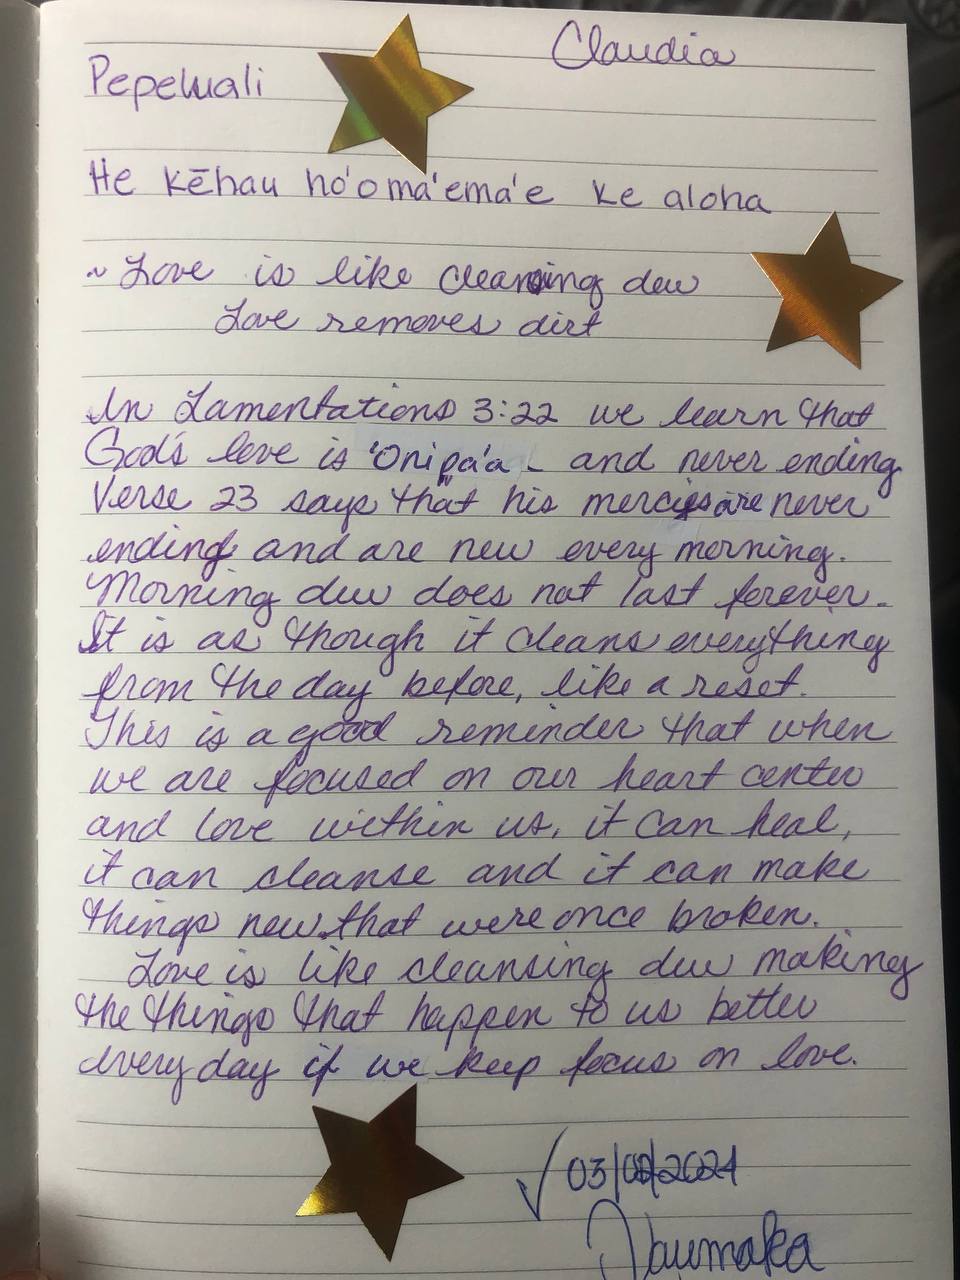 Claudia
Pepeluali
He kēhau ho'oma'ema'e ke aloha
~ Love is like cleansing dew
Love removes dirt
In Lamentations 3:22 we learn that
God's love is 'Onipa'a - and never ending
Verse 23 says that his mercies are never
ending and are new every morning.
Morning dew does not last forever.
It is as though it cleans everything
from the day before, like a reset.
This is a good reminder that when
we are focused on our heart center
and love within us, it can heal,
it can cleanse and it can make
things new that were once broken.
Love is like cleansing dew making
the things that happen to us better
every day if we keep focus on love.
✓ 03/02/2021